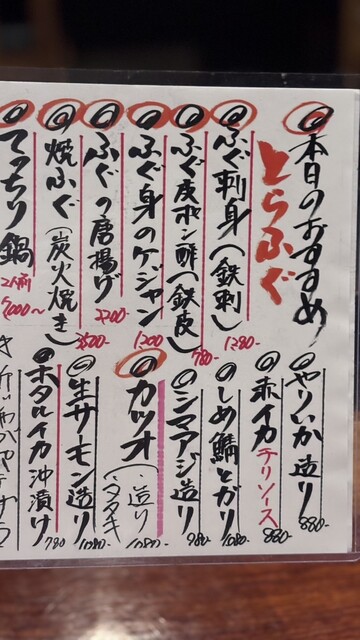 本日のおすすめ
とらふぐ
ふぐ刺身(鉄刺) 1280-
ふぐ皮ポン酢(鉄皮) 780-
ふぐ身のケジャン 1200
ふぐの唐揚げ 2200-
焼ふぐ(炭火焼き) 2500-
てっちり鍋 2人前
やりいか造り 880-
赤イカチリソース 880-
しめ鯖とガリ 1080-
シマアジ造り 980-
カツオ(造り タタキ) 1080-
生サーモン造り 1080-
ホタルイカ沖漬け 780